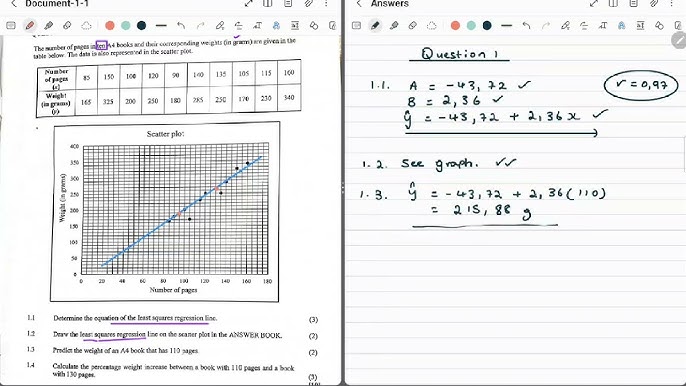 Document-1-1
The number of pages in ten A4 books and their corresponding weights (in grams) are given in the
table below. The data is also represented in the scatter plot.
Number of pages (x) 85 150 100 120 90 140 135 105 115 160
Weight (in grams) (y) 165 325 200 250 180 285 250 170 230 340
Scatter plot
Weight (in grams)
400
350
300
250
200
150
100
50
0
0 20 40 60 80 100 120 140 160 180
Number of pages
1.1 Determine the equation of the least squares regression line. (3)
1.2 Draw the least squares regression line on the scatter plot in the ANSWER BOOK. (2)
1.3 Predict the weight of an A4 book that has 110 pages (2)
1.4 Calculate the percentage weight increase between a book with 110 pages and a book
with 130 pages. (3)
[10]
Answers
Question 1
1.1. A = -43,72 ✓
r = 0,97
B = 2,36 ✓
ŷ = -43,72 + 2,36x ✓
1.2. See graph. ✓✓
1.3. ŷ = -43,72 + 2,36(110)
= 215,88 g